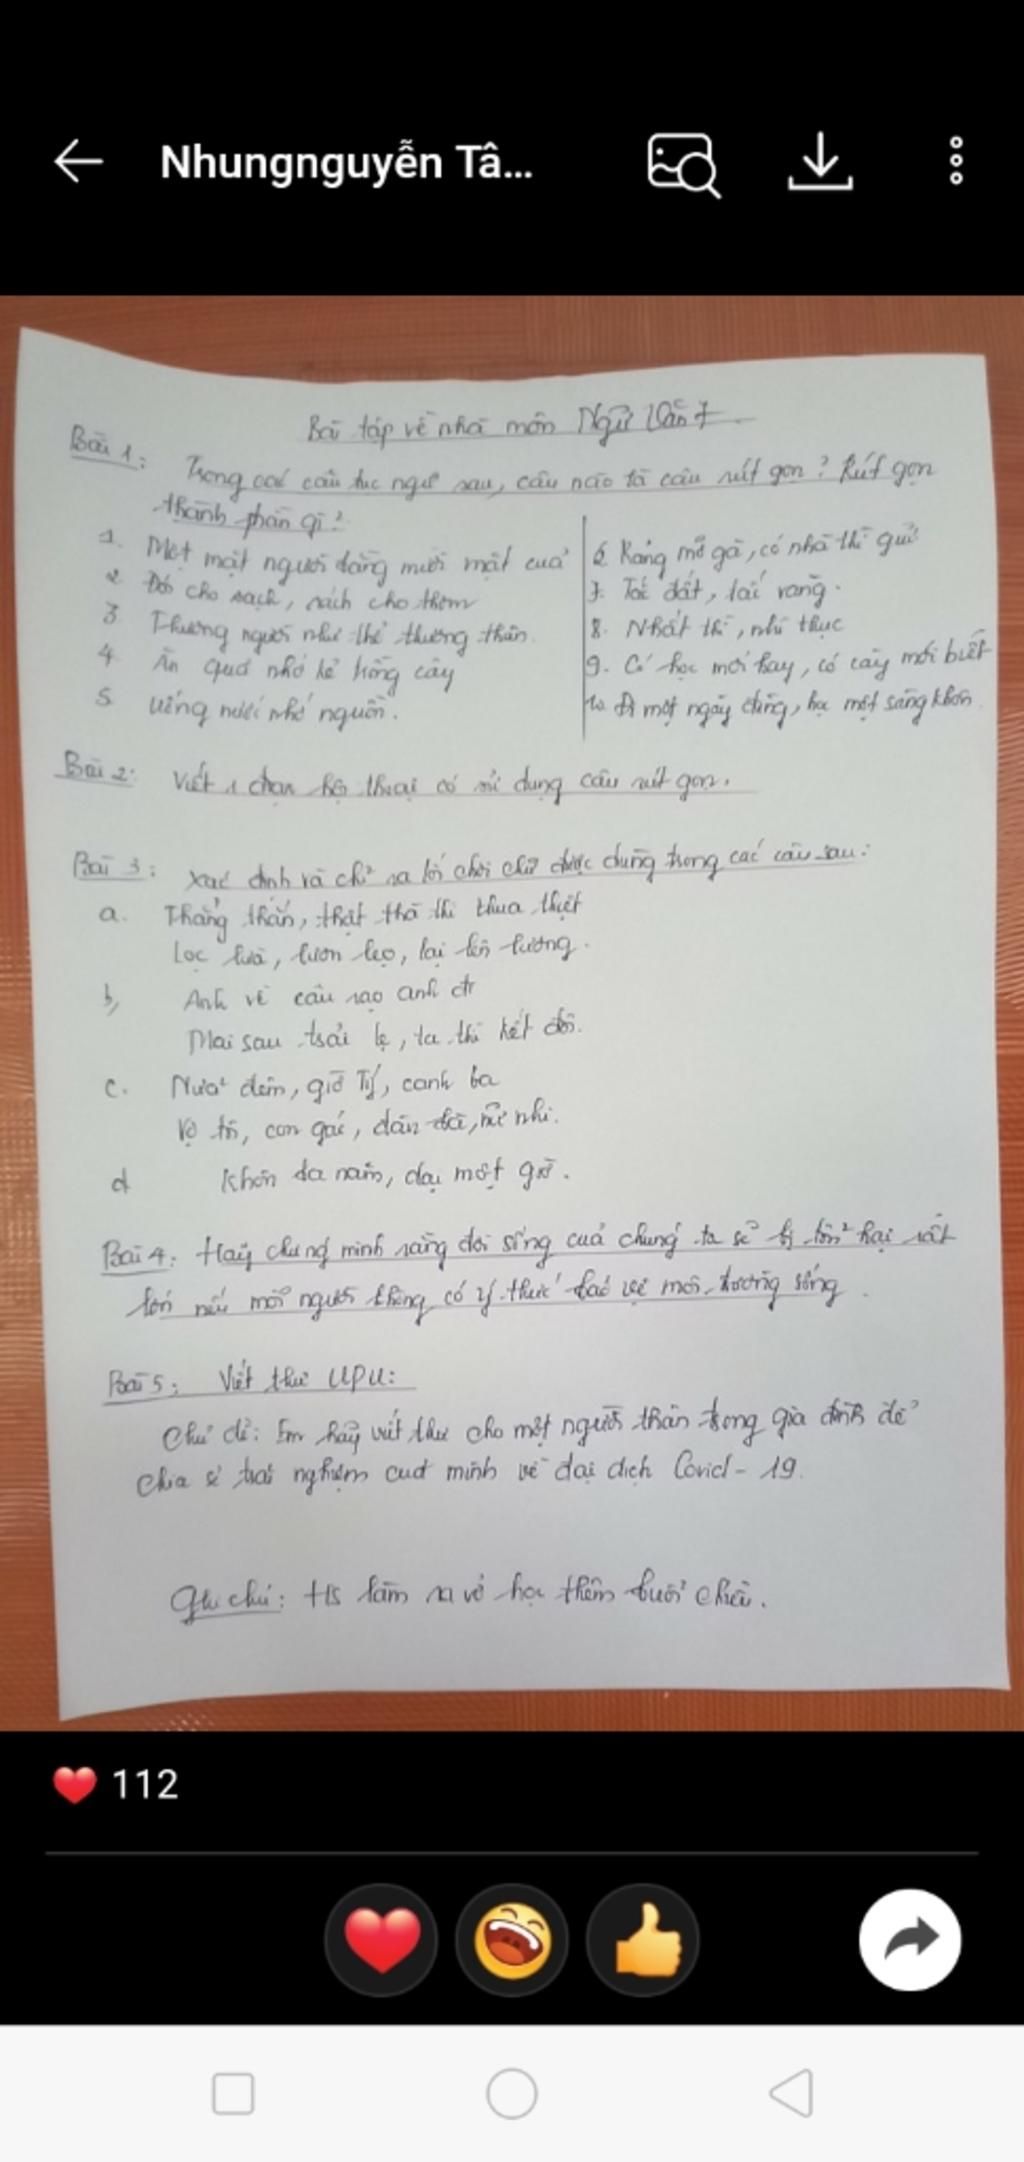 Nhungnguyễn Tâ...
Bài tập về nhà môn Ngữ Văn 7
Bài 1: Trong các câu tục ngữ sau, câu nào là câu rút gọn? Rút gọn
thành phần gì?
1. Một mặt người bằng mười mặt của
2. Đói cho sạch, rách cho thơm
3. Thương người như thể thương thân.
4. Ăn quả nhớ kẻ trồng cây
5. Uống nước nhớ nguồn.
6. Ráng mỡ gà, có nhà thì giữ
7. Tấc đất, tấc vàng.
8. Nhất thì, nhì thục
9. Có học mới hay, có cày mới biết
10. Đi một ngày đàng, học một sàng khôn.
Bài 2: Viết 1 đoạn hội thoại có sử dụng câu rút gọn.
Bài 3: Xác định và chỉ ra lối chơi chữ được dùng trong các câu sau:
a. Thẳng thắn, thật thà thì thua thiệt
Lọc lừa, lươn lẹo, lại lên lương.
b, Anh về sao anh
Mai sau ta thì kết đôi.
c. Nửa đêm, giờ Tý, canh ba
Vợ tôi, con gái, đàn bà, nữ nhi.
d Khôn ba năm, dại một giờ.
Bài 4: Hãy chứng minh rằng đời sống của chúng ta sẽ bị tổn hại rất
lớn nếu mỗi người không có ý thức bảo vệ môi trường sống.
Bài 5: Viết thư UPU:
Chủ đề: Em hãy viết thư cho một người thân trong gia đình để
chia sẻ trải nghiệm của mình về đại dịch Covid-19.
Ghi chú: HS làm ra vở học thêm buổi chiều.
112